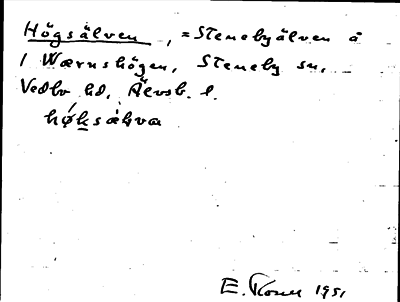 Högsälven, = Stenebyälven å
i Wærnshögen, Steneby sn,
Vedbo hd, Älvsb. l.
høksạ̈lva
E. 1951